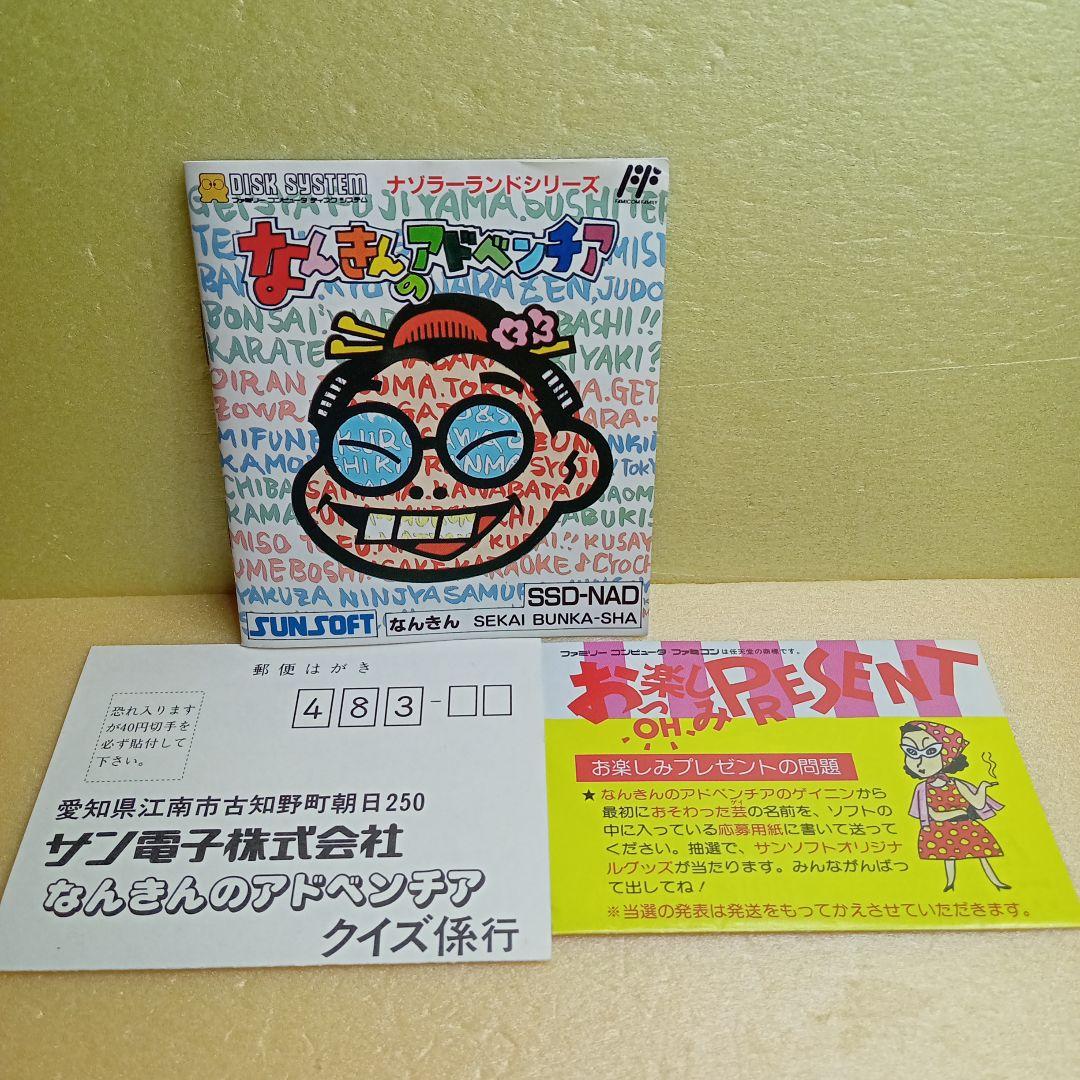 DISK SYSTEM
ファミリー コンピュータ ディスク システム
ナゾラーランドシリーズ
FAMICOM FAMILY
なんきんのアドベンチア
BONSAI
KARATE
OIRAN
MIFUNE
CHIBA
KAWABATA!!
MISO
KUSAY
UMEBOSHI. SAKE KARAOKE♪
YAKUZA NINJYA SAMU
SSD-NAD
SUNSOFT
なんきん SEKAI BUNKA-SHA
郵便はがき
恐れ入ります
が40円切手を
必ず貼付して
下さい。
483-
愛知県江南市古知野町朝日250
サン電子株式会社
なんきんのアドベンチア
クイズ係行
ファミリー コンピュータ ファミコンは任天堂の商標です。
お楽しみPRESENT
OH
お楽しみプレゼントの問題
★なんきんのアドベンチアのゲイニンから
最初におそわった芸の名前を、ソフトの
中に入っている応募用紙に書いて送って
ください。抽選で、サンソフトオリジナ
ルグッズが当たります。みんながんばっ
て出してね！
※当選の発表は発送をもってかえさせていただきます。